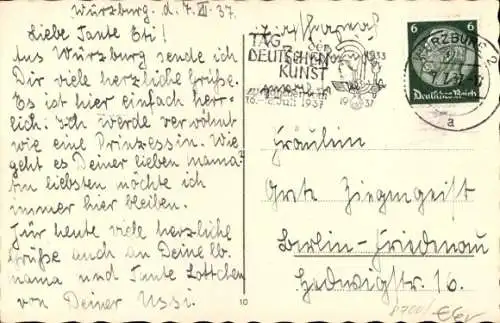 Würzburg. d. 7. VII. 37.
Liebe Tante Eti!
Aus Würzburg sende ich
Dir viele herzliche Grüße.
Es ist hier einfach herr-
lich. Ich werde verwöhnt
wie eine Prinzessin. Wie
geht es Deiner lieben Mama?
Am liebsten möchte ich
immer hier bleiben.
Für heute viele herzliche
Grüße auch an Deine lb.
Mama und Tante Lottchen
von Deiner Ussi.
TAG DER
DEUTSCHEN
KUNST
16.-18. Juli 1937
1933
1937
6 6
Deutsches Reich
WÜRZBURG 2
7.7.37
a
Fräulein
Grete Ziegengeist
Berlin-Friedenau
Hedwigstr. 16.
10
8700/